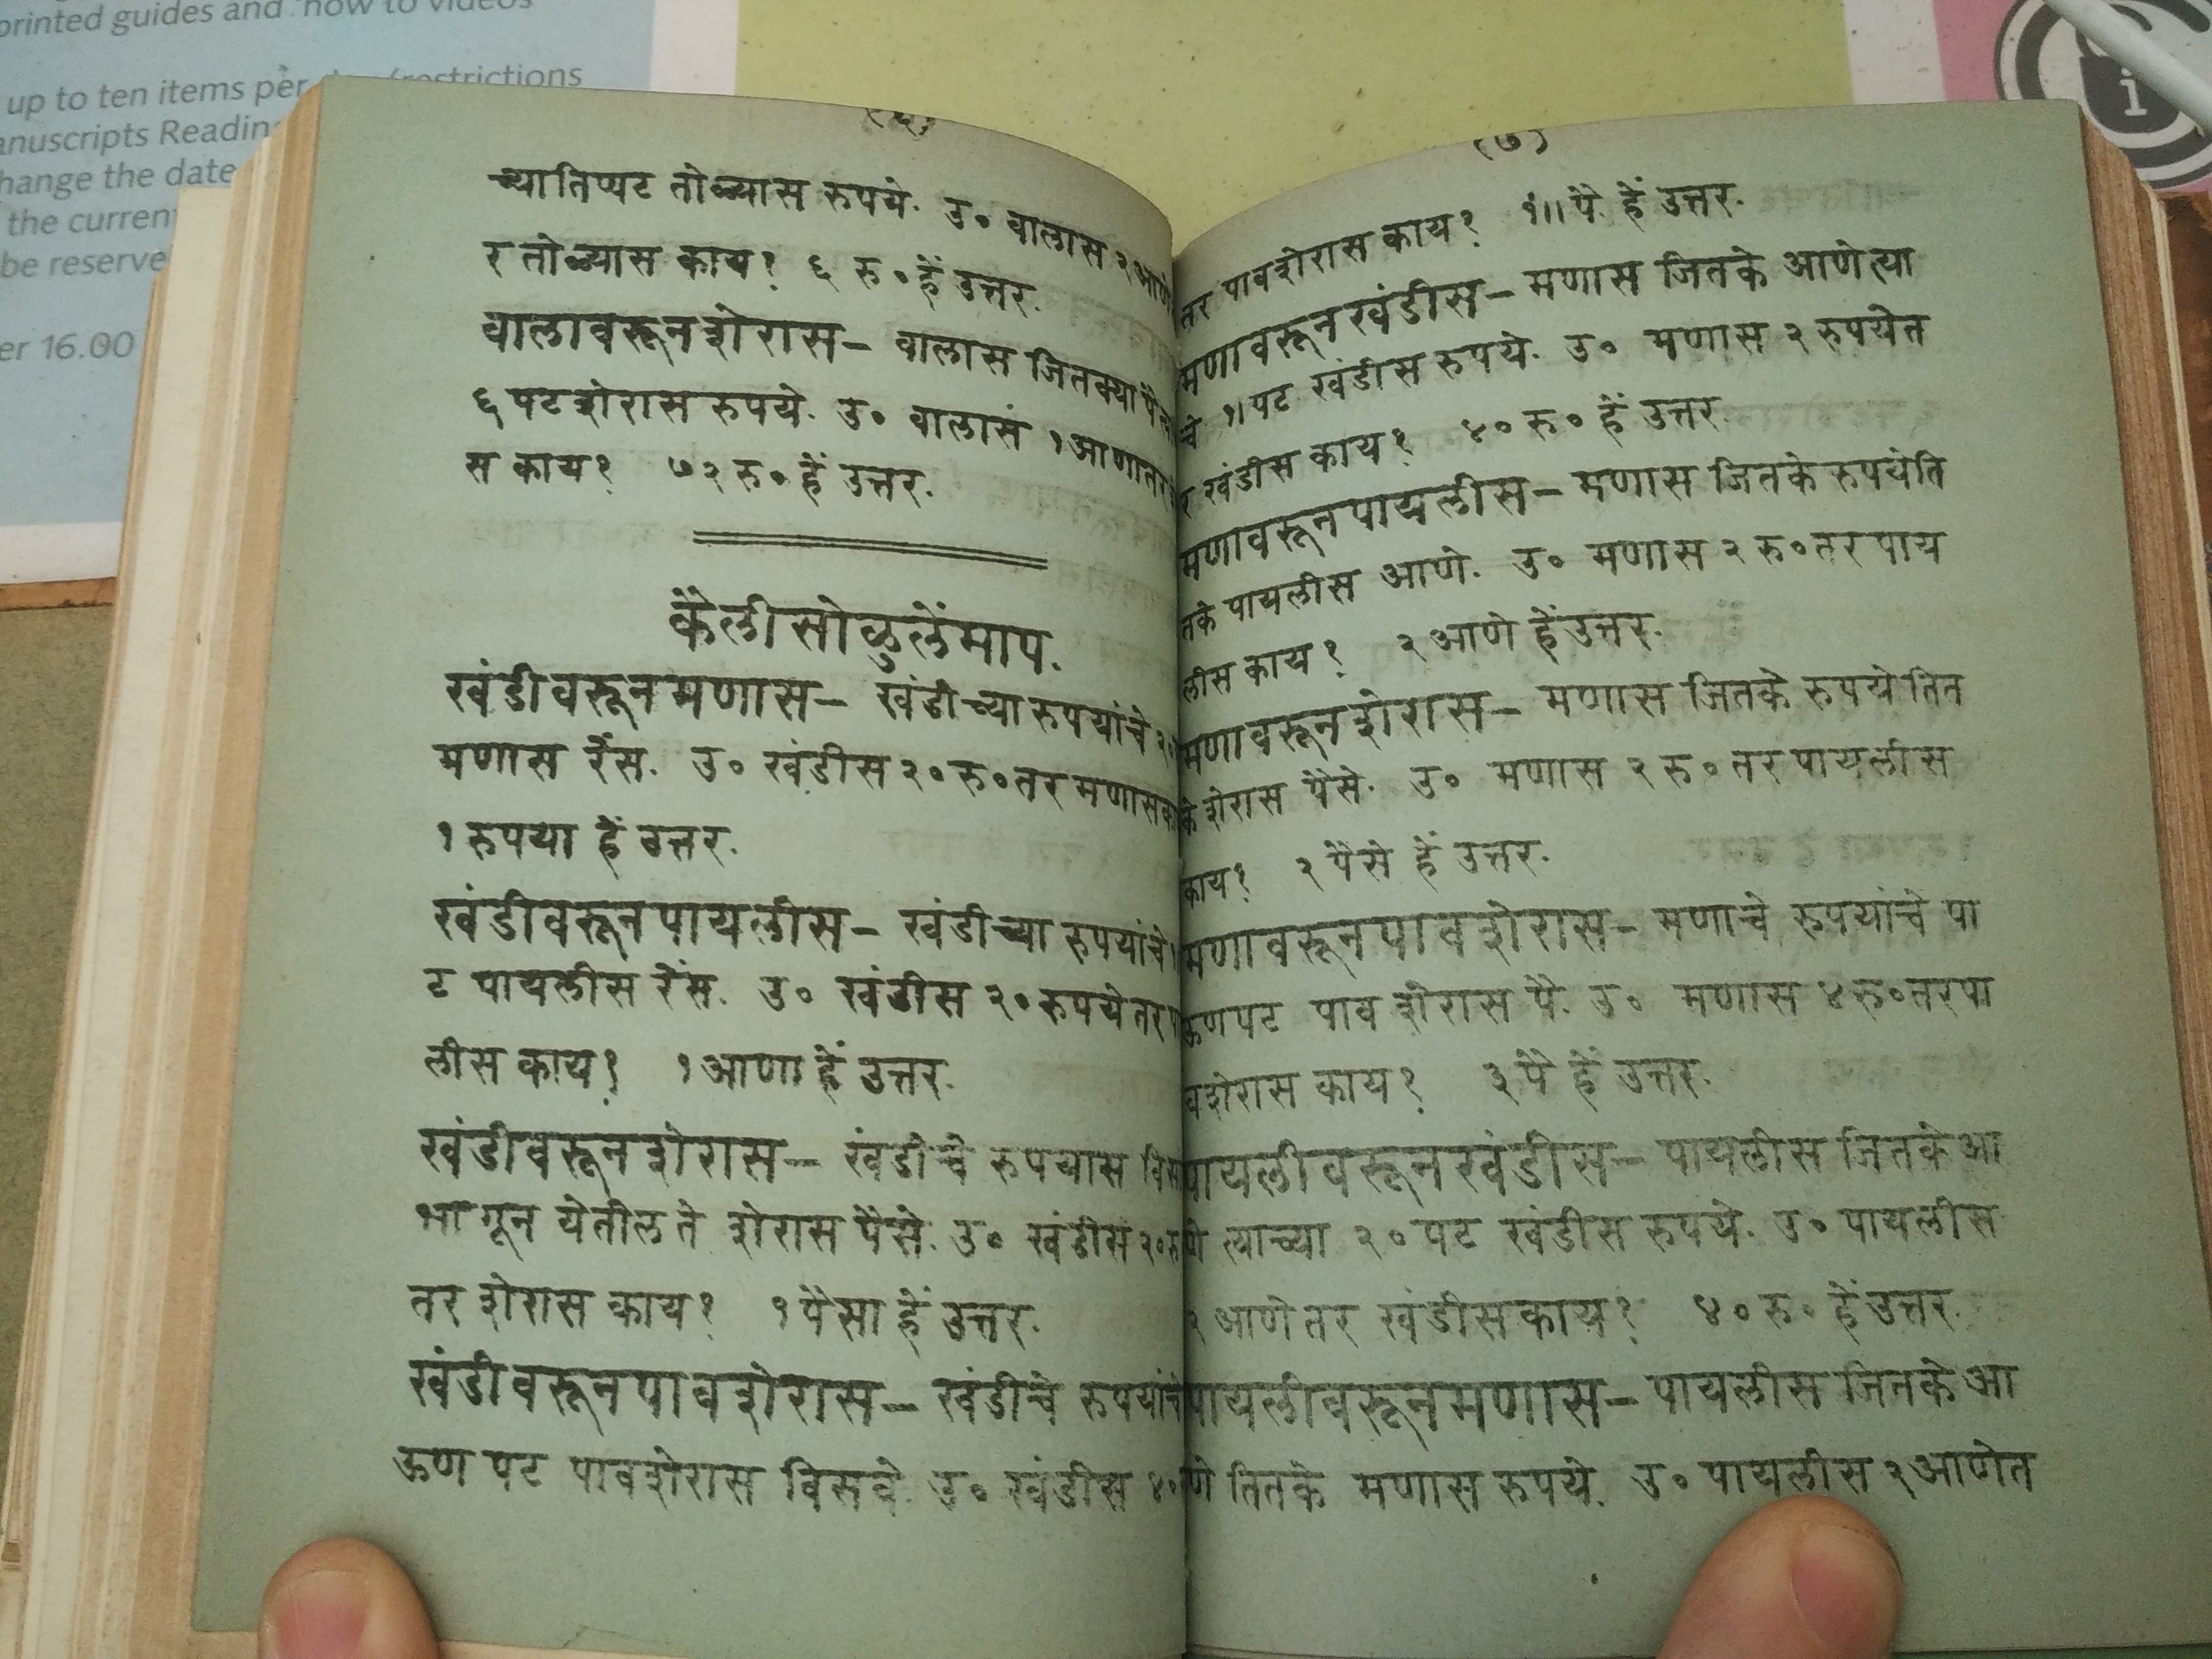 printed guides and 'how to' videos
up to ten items per
(restrictions
anuscripts Reading
hange the date
the current
be reserve
er 16.00
i
च्यातिप्पट तोळ्यास रुपये. उ० वालास २ आणे
र तोळ्यास काय? ६ रु०हें उत्तर.
वालावरूनशेरास— वालास जितक्या
६ पटशेरास रुपये. उ० वालासं १ आणातर
स काय? ७२ रु०हें उत्तर.
कैलीसोळुलेंमाप.
खंडीवरूनमणास— खंडीच्या रुपयांचे
मणास रेंस. उ० खंडीस २० रु०तर मणास
१ रुपया हें उत्तर.
खंडीवरूनपायलीस— खंडीच्या रुपयांचे
ट पायलीस रेंस. उ० खंडीस २० रुपये तर
लीस काय? १ आणा हें उत्तर.
खंडीवरूनशेरास— खंडीचे रुपयास
भागून येतील ते शेरास पैसे. उ० खंडीस २०
तर शेरास काय? १ पैसा हें उत्तर.
खंडीवरूनपावशेरास— खंडीचे रुपयांचे
ऊण पट पावशेरास विसवे. उ० खंडीस ४०
(७)
तर पावशेरास काय? १॥ पै. हें उत्तर.
मणावरूनखंडीस— मणास जितके आणेत्या
चे १। पट खंडीस रुपये. उ० मणास २ रुपयेत
र खंडीस काय? ४० रु० हें उत्तर.
मणावरूनपायलीस— मणास जितके रुपयेति
तके पायलीस आणे. उ० मणास २ रु०तर पाय
लीस काय? २ आणे हें उत्तर.
मणावरूनशेरास— मणास जितके रुपये तित
के शेरास पैसे. उ० मणास २ रु०तर पायलीस
काय? २ पैसे हें उत्तर.
मणावरूनपावशेरास— मणाचे रुपयांचे पा
ऊणपट पाव शेरास पै. उ० मणास ४ रु०तरपा
वशेरास काय? ३ पै हें उत्तर.
पायलीवरूनखंडीस— पायलीस जितके आ
णे त्याच्या २० पट खंडीस रुपये. उ० पायलीस
२ आणे तर खंडीस काय? ४० रु० हें उत्तर.
पायलीवरूनमणास— पायलीस जितके आ
णे तितके मणास रुपये. उ० पायलीस २ आणेत